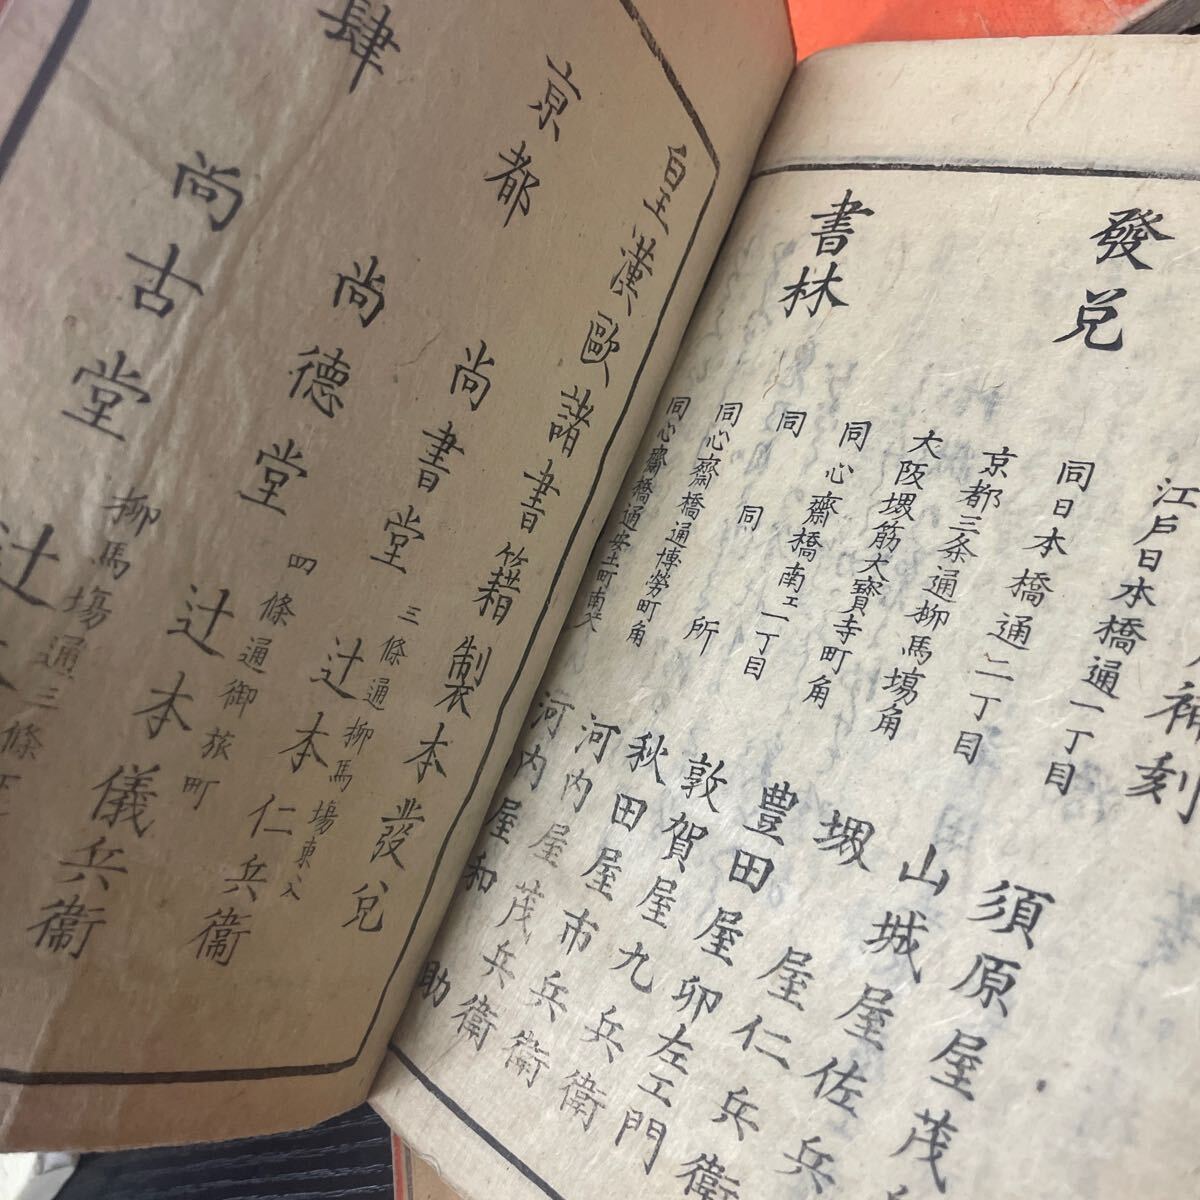 補刻
發兌
書林
江戸日本橋通一丁目 須原屋茂
同日本橋通二丁目 山城屋佐兵
京都三条通柳馬塲角 堺屋仁兵衛
大阪堺筋大寶寺町角 豊田屋卯左エ門
同心齋橋南エ一丁目 敦賀屋九兵衛
同 同 所 秋田屋市兵衛
同心齋橋通博勞町角 河内屋茂兵衛
同心齋橋通安土町南 河内屋和助
皇漢歐諸書籍製本發兌
京都
尚書堂 三條通柳馬塲東入 辻本仁兵衞
尚德堂 四條通御旅町 辻本儀兵衞
肆
尚古堂 柳馬塲通三條 辻本